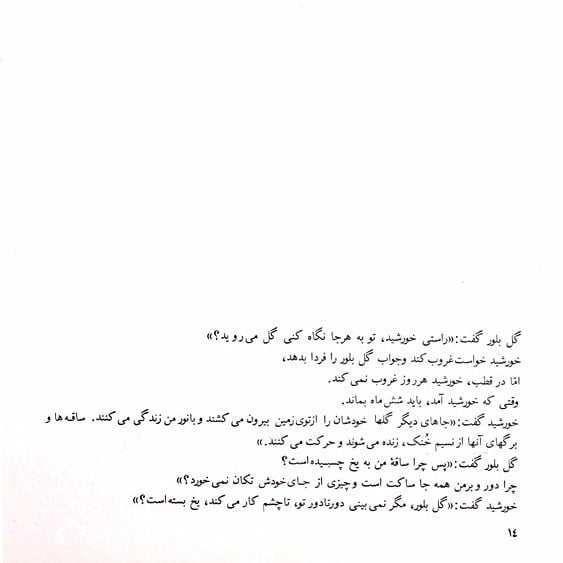 گل بلور گفت: «راستی خورشید، تو به هرجا نگاه کنی گل می‌روید؟»
خورشید خواست غروب کند وجواب گل بلور را فردا بدهد،
امّا در قطب، خورشید هر روز غروب نمی‌کند.
وقتی که خورشید آمد، باید شش ماه بماند.
خورشید گفت: «جاهای دیگر گلها خودشان را ازتوی زمین بیرون می‌کشند و بانور من زندگی می‌کنند. ساقه‌ها و
برگهای آنها از نسیم خُنک، زنده می‌شوند و حرکت می‌کنند.»
گل بلور گفت: «پس چرا ساقۀ من به یخ چسبیده است؟
چرا دور و برمن همه جا ساکت است وچیزی از جای خودش تکان نمی‌خورد؟»
خورشید گفت: «گل بلور، مگر نمی‌بینی دورتادور تو، تاچشم کار می‌کند، یخ بسته است؟»
۱۴